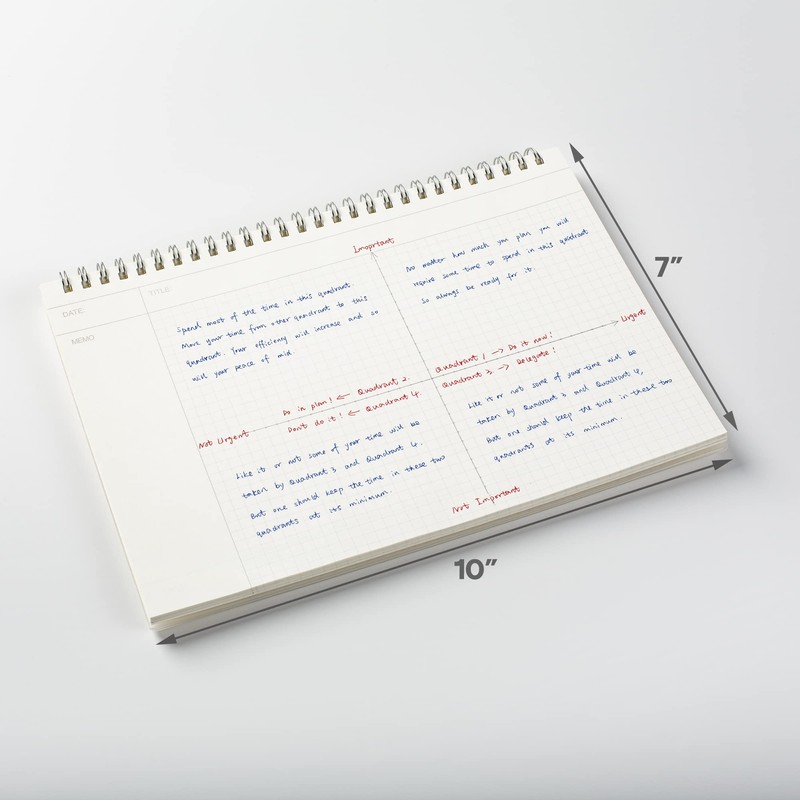 DATE:
TITLE:
MEMO
Important
Spend most of the time in this quadrant.
Move your time from other quadrant to this
quadrant. Your efficiency will increase and so
will your peace of mid.
No matter how much you plan you will
Herive some time to spend in this quadrant
So always be ready for it.
Urgent
Do in plan! ← Quadrant 2.
Quadrant 1 → Do it now!
Don't do it! ← Quadrant 4.
Quadrant 3 → Delegate!
Not Urgent
Like it or not some of your time will be
taken by Quadrant 3 and Quadrant 4.
But one should keep the time in these two
quadrants at its minimum.
Like it or not some of your time will be
taken by Quadrant 3 and Quadrant 4,
But one should keep the time in these two
quadrants at its minimum.
Not Important
7″
10″